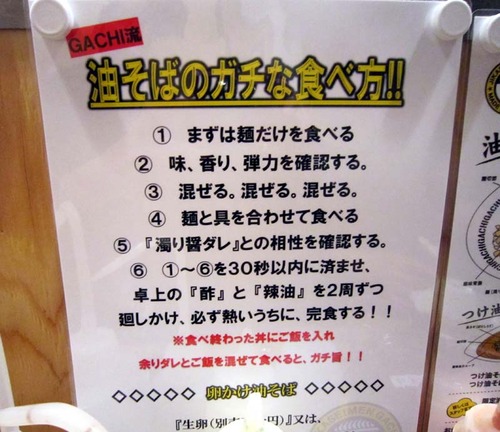 GACHI流
油そばのガチな食べ方!!
① まずは麺だけを食べる
② 味、香り、弾力を確認する。
③ 混ぜる。混ぜる。混ぜる。
④ 麺と具を合わせて食べる
⑤『濁り醤ダレ』との相性を確認する。
⑥ ①～⑥を30秒以内に済ませ、
卓上の『酢』と『辣油』を2周ずつ
廻しかけ、必ず熱いうちに、完食する!!
※食べ終わった丼にご飯を入れ
余りダレとご飯を混ぜて食べると、ガチ旨!!
◇◇◇◇◇ 卵かけ油そば ◇◇◇◇◇
『生卵(別 円)』又は、
油
つけ油
つけ油そ